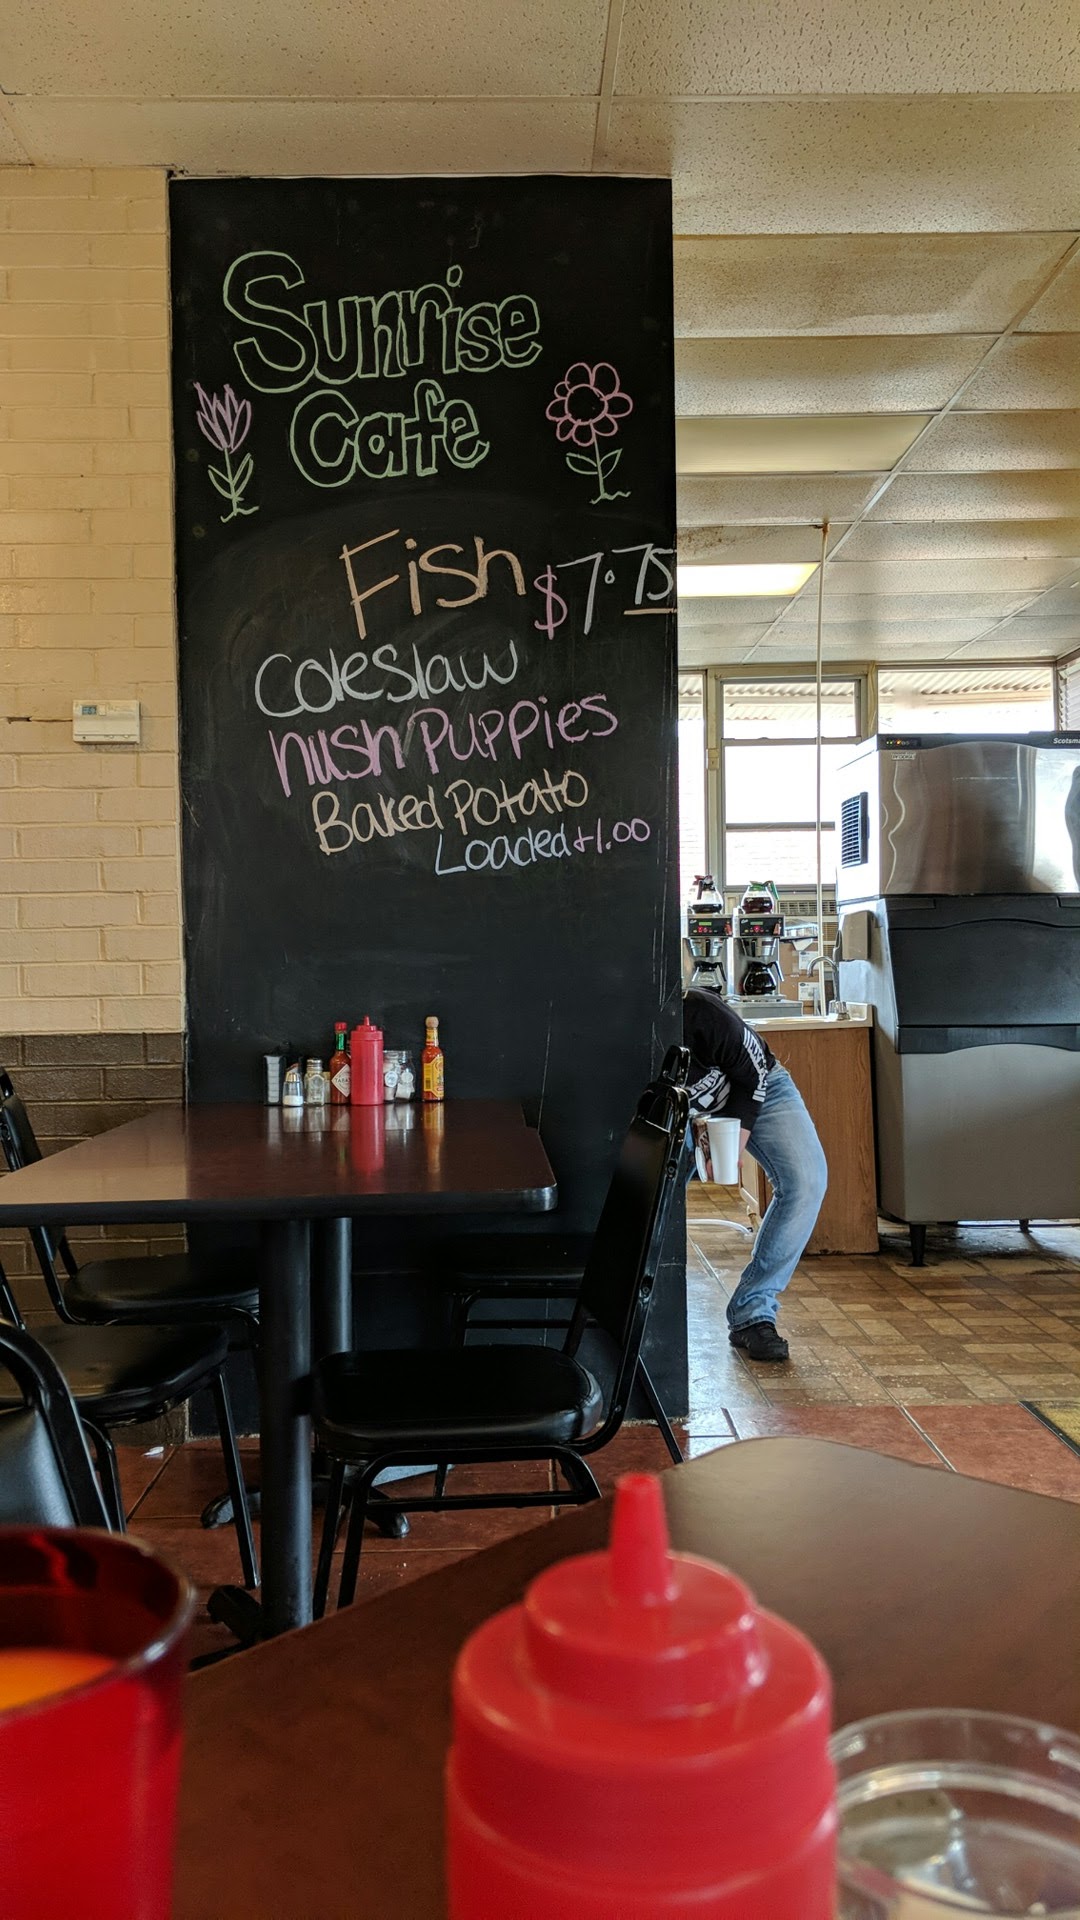 Sunrise
Cafe
Fish $7.75
Coleslaw
hush Puppies
Baked Potato
Loaded +1.00